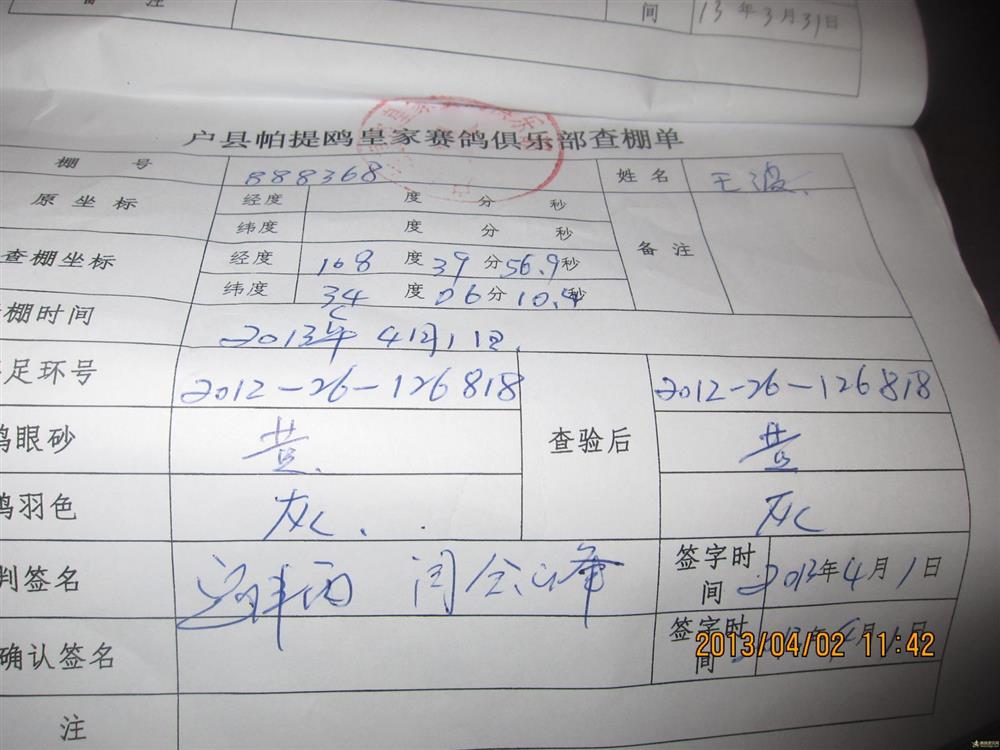 备 注 间 13年3月31日
户县帕提鸥皇家赛鸽俱乐部查棚单
棚 号 888368 姓 名 王波
原 坐 标 经度 度 分 秒 备 注
纬度 度 分 秒
查棚坐标 经度 108 度 39 分 56.9 秒
纬度 34 度 06 分 10.4 秒
棚时间 2013年4月1日
足环号 2012-26-126818 查验后 2012-26-126818
眼砂 黄 黄
羽色 灰 灰
判签名 闫会峰 签字时间 2013年4月1日
确认签名 签字时间 13年4月1日
注
2013/04/02 11:42